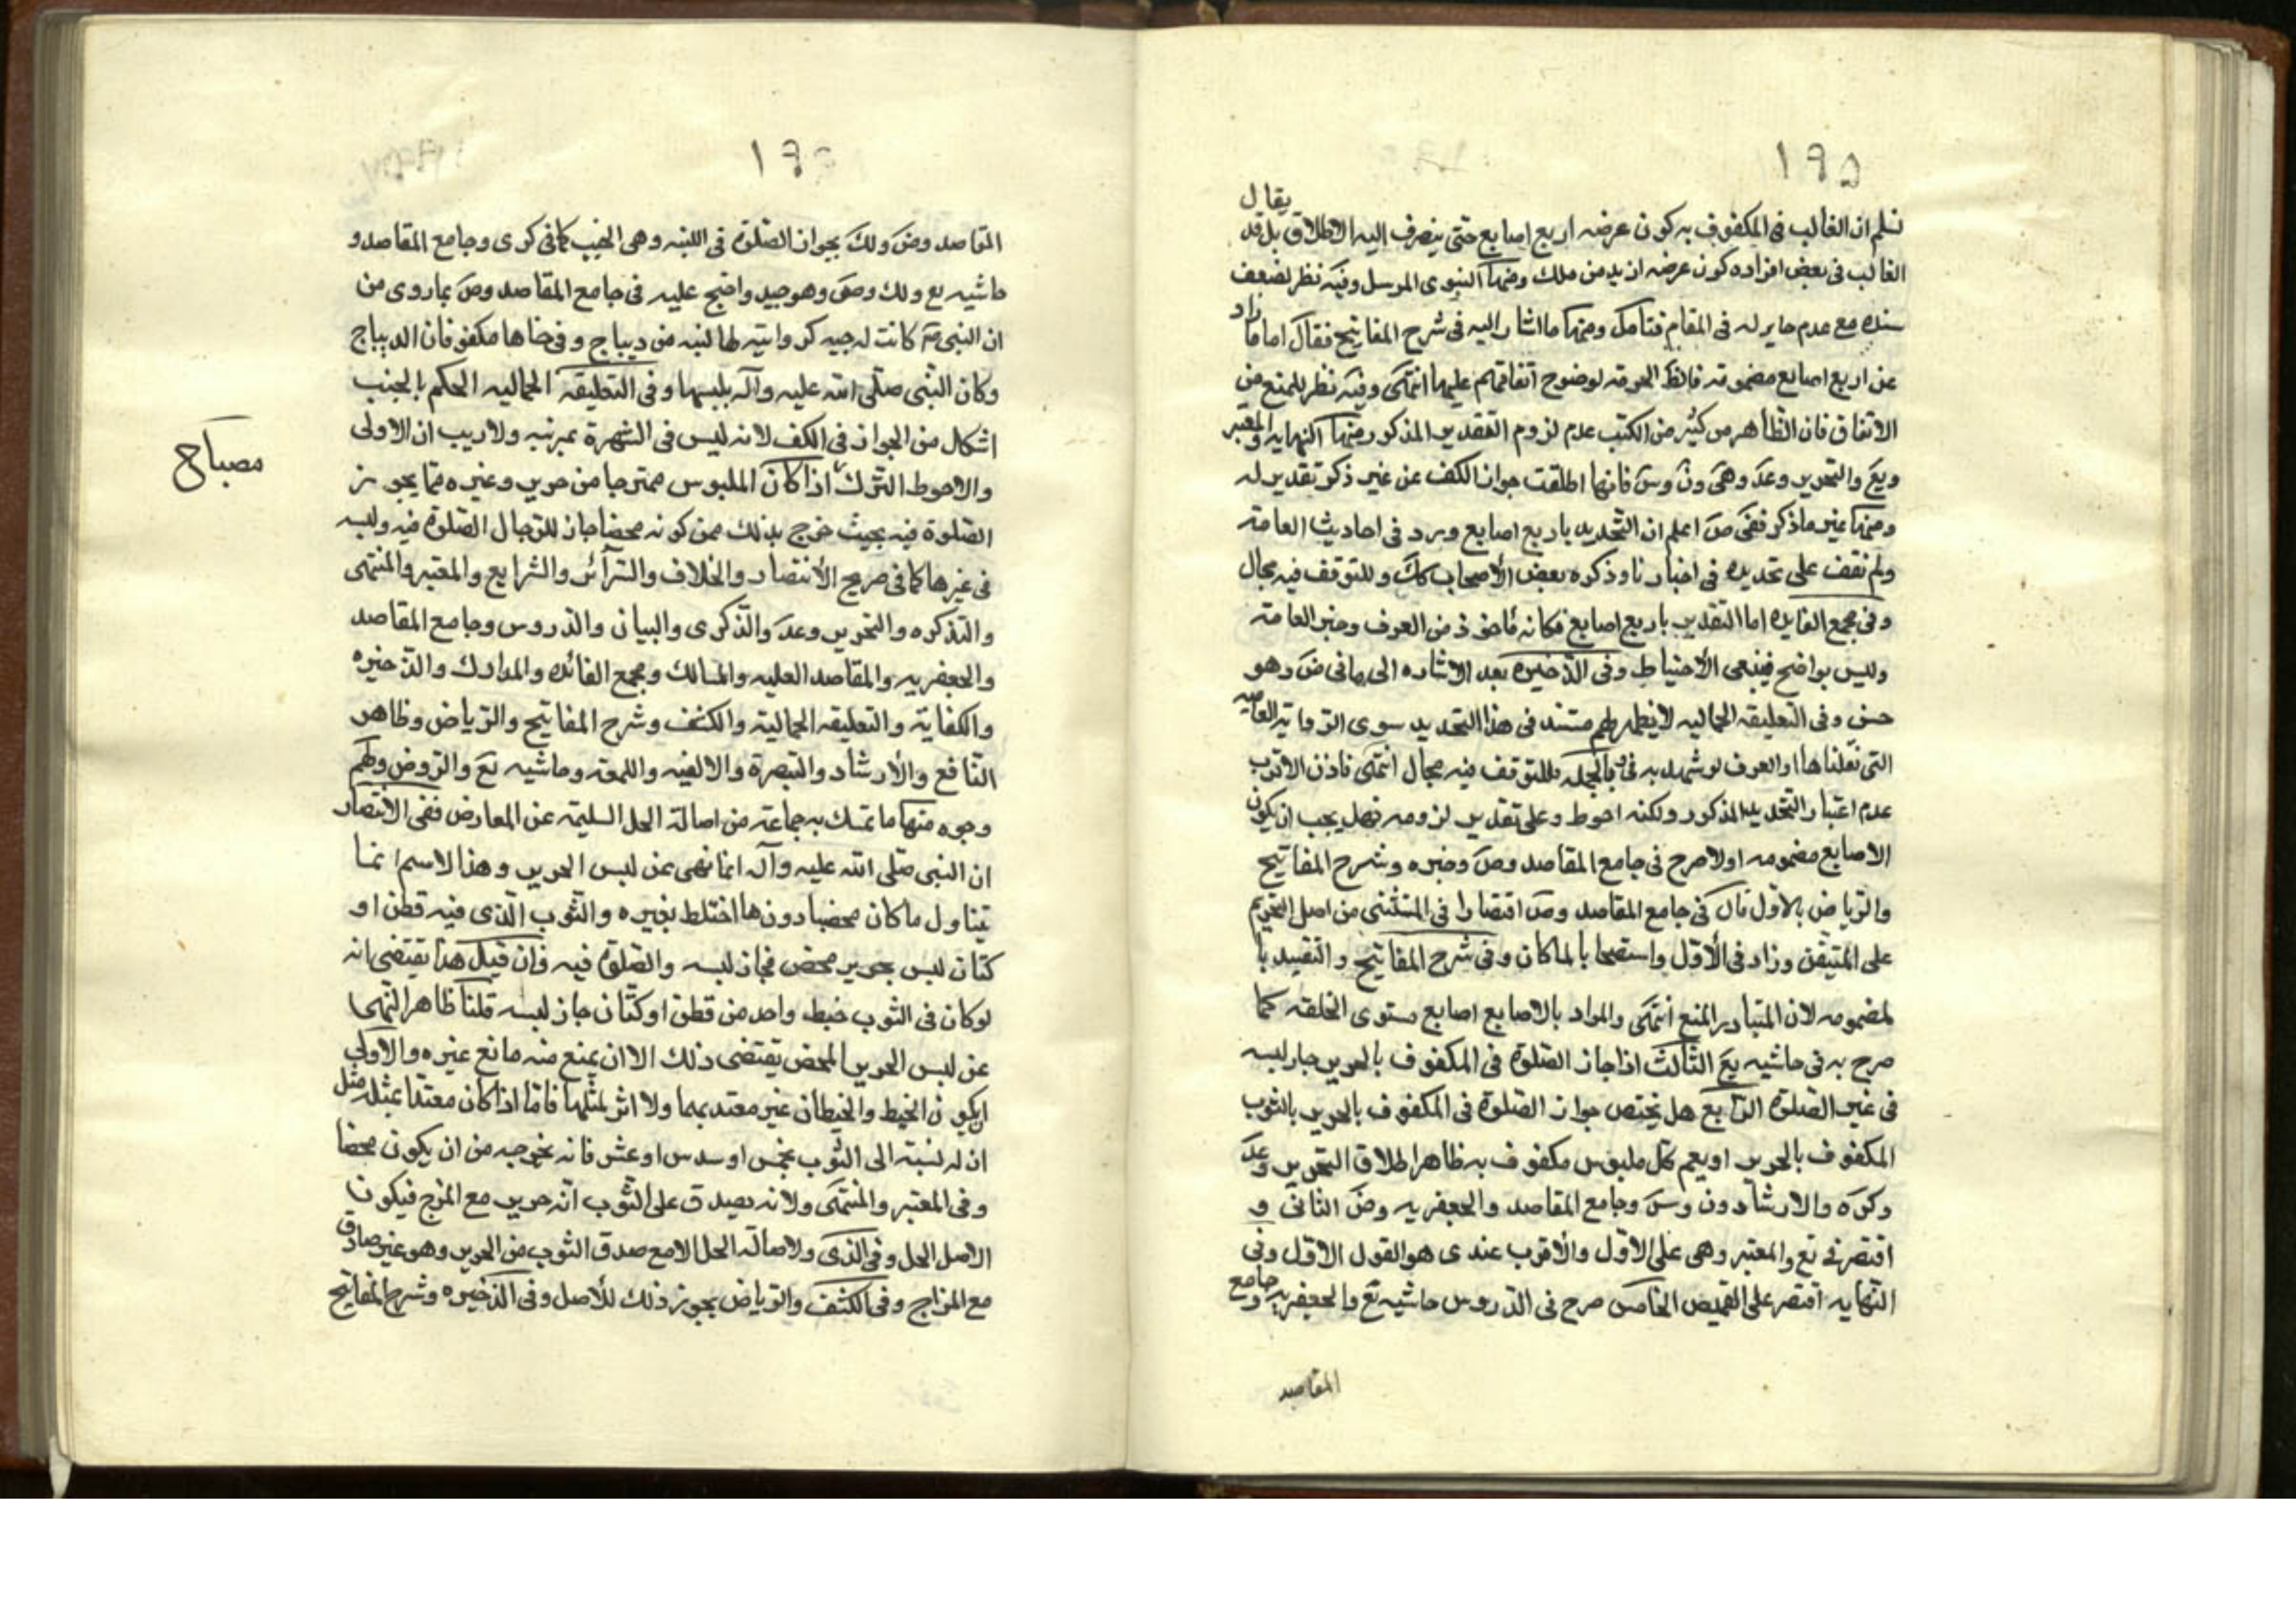 ١٩٥
نسلم ان الغالب فى المكفوف به كون عرضه اربع اصابع حتى ينصرف اليه الاطلاق بل قد يقال
الغالب فى بعض افراده كون عرضه ازيد من ذلك ومنها النبوى المرسل وفيه نظر لضعف
سنده مع عدم جابر له فى المقام فتامل ومنها ما اشار اليه فى شرح المفاتيح فقال اما ما زاد
عن اربع اصابع مضمومة فالظ الحرمة لوضوح اتفاقهم عليها انتهى وفيه نظر للمنع من
الاتفاق فان الظاهر من كثير من الكتب عدم لزوم التقدير المذكور منها النهايه والمعتبر
ويع والتحرير وعد وهى ون وس فانها اطلقت جواز الكف عن غير ذكر تقدير له
ومنها غير ما ذكر ففى ض اعلم ان التحديد باربع اصابع ورد فى احاديث العامة
ولم نقف على تحديده فى اخبارنا وذكره بعض الأصحاب كك وللتوقف فيه مجال
وفى مجمع الفايده اما التقدير باربع اصابع فكانه مأخوذ من العرف وخبر العامة
وليس بواضح فينبغى الأحتياط وفى الذخيره بعد الاشاره الى ما فى ض وهو
حسن وفى التعليقه الجماليه لا يظهر لهم مستند فى هذا التحديد سوى الرواية العاميه
التى نقلناها او العرف لو شهد به وبالجمله للتوقف فيه مجال انتهى فاذن الاقرب
عدم اعتبار التحديد المذكور ولكنه احوط وعلى تقدير لزومه فهل يجب ان يكون
الاصابع مضمومه اولا صرح فى جامع المقاصد وض وخيره وشرح المفاتيح
والرياض بالاول قال فى جامع المقاصد وض اقتصارا فى المستثنى من اصل التحريم
على المتيقن وزاد فى الأول واستصحابا لما كان وفى شرح المفاتيح والتقييد با
لمضمومه لان المتبادر المنع انتهى والمراد بالاصابع اصابع مستوى الخلقه كما
صرح به فى حاشيه يع الثالث اذا جاز الصلوة فى المكفوف بالحرير جاز لبسه
فى غير الصلوة الرابع هل يختص جواز الصلوة فى المكفوف بالحرير بالثوب
المكفوف بالحرير او يعم كل ملبوس مكفوف به ظاهر اطلاق التحرير وعد
وكره والارشاد ون وس وجامع المقاصد والجعفريه وض الثانى و
اقتصر فى يع والمعتبر وهى على الاول والأقرب عندى هو القول الاول وفى
النهايه اقتصر على القميص الخامس صرح فى الدروس حاشيه يع والجعفريه وجامع
المقاصد
١٩٦
المقاصد وض ولك بجواز الصلوة فى اللبنه وهى الجيب كما فى كرى وجامع المقاصد و
حاشيه يع ولك وض وهو جيد واحتج عليه فى جامع المقاصد وض بما روى من
ان النبى ص كانت له جبه كسروانيه لها لبنه من ديباج وفرجاها مكفوفان الديباج
وكان النبى صلى الله عليه وآله يلبسها وفى التعليقه الجماليه الحكم بالجيب
اشكال من الجواز فى الكف لانه ليس فى الشهرة بمرتبه ولا ريب ان الاولى
والاحوط الترك اذا كان الملبوس ممتزجا من حرير وغيره مما يجوز
الصلوة فيه بحيث خرج بذلك من كونه محضا جاز للرجال الصلوة فيه ولبسه
فى غيرها كما فى صريح الأنتصار والخلاف والسرآئر والشرايع والمعتبر والمنتهى
والتذكره والتحرير وعد والذكرى والبيان والدروس وجامع المقاصد
والجعفريه والمقاصد العليه والمسالك ومجمع الفائده والمدارك والذخيره
والكفاية والتعليقه الجمالية والكشف وشرح المفاتيح والرياض وظاهر
النافع والأرشاد والتبصرة والالفيه واللمعه وحاشيه يع والروض ولهم
وجوه منها ما تمسك به جماعة من اصالة الحل السليمة عن المعارض ففى الانتصار
ان النبى صلى الله عليه وآله انما نهى عن لبس الحرير وهذا الاسم انما
يتناول ما كان محضا دون ما اختلط بغيره والثوب الذى فيه قطن او
كتان ليس بحرير محض فجاز لبسه والصلوة فيه فان قيل هذا يقتضى انه
لو كان فى الثوب خيط واحد من قطن او كتان جاز لبسه قلنا ظاهر النهى
عن لبس الحرير المحض يقتضى ذلك الا ان يمنع منه مانع غيره والاولى
ان يكون الخيط والخيطان غير معتد بهما ولا اثر لمثلها فاما اذا كان معتدا بمثله مثل
ان له نسبة الى الثوب بخمس او سدس او عشر فانه يخرجه من ان يكون محضا
وفى المعتبر والمنتهى ولانه يصدق على الثوب انه حرير مع المزج فيكون
الاصل الحل وفى الذكرى ولاصاله الحل الا مع صدق الثوب من الحرير وهو غير صادق
مع المزاج وفى الكشف والرياض يجوز ذلك للأصل وفى الذخيره وشرح المفاتيح
مصباح